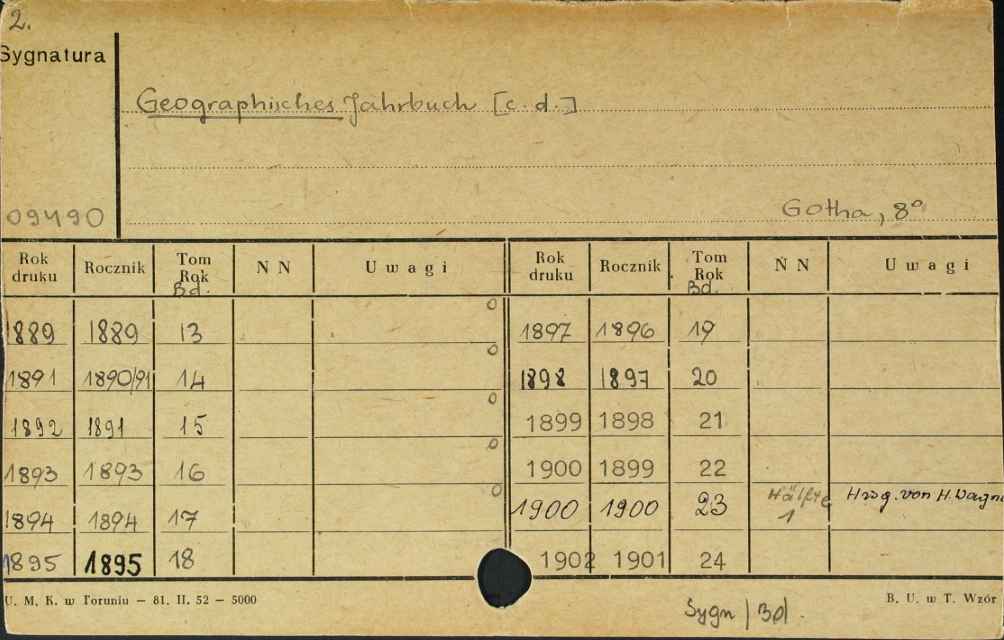 2.
Sygnatura
Geographisches Jahrbuch [c. d.]
09490
Gotha, 8°
Rok druku Rocznik Tom Rok Bd. N N Uwagi Rok druku Rocznik Tom Rok Bd. N N Uwagi
1889 1889 13 1897 1896 19
1891 1890/91 14 1898 1897 20
1892 1891 15 1899 1898 21
1893 1893 16 1900 1899 22
1894 1894 17 1900 1900 23 Hälfte 1 Hrsg. von H. Wagn
1895 1895 18 1902 1901 24
U. M. K. w Toruniu — 81. II. 52 — 5000
B. U. w T. Wzór
Sygn | Bd.